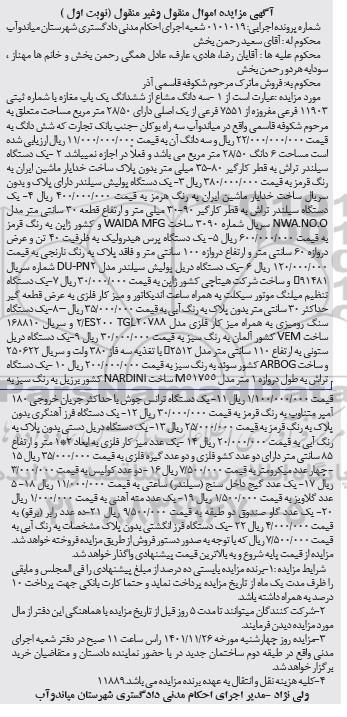 آگهی مزایده اموال منقول وغیر منقول (نوبت اول )
شماره پرونده اجرایی: ۰۱۰۱۰۱۹ شعبه اجرای احکام مدنی دادگستری شهرستان میاندوآب
محکوم له : آقای سعید رحمن بخش
محکوم علیه ها : آقایان رضا، هادی، عارف، عادل همگی رحمن بخش و خانم ها مهناز ،
سودابه هر دو رحمن بخش
محکوم به: فروش ماترک مرحوم شکوفه قاسمی آذر
مورد مزایده :عبارت است از ۱-سه دانگ مشاع از ششدانگ یک باب مغازه با شماره ثبتی
۱۱۹۰۳ فرعی مفروزه از ۷۵۵۱ فرعی از یک اصلی دارای ۲۸/۵۰ متر مربع مساحت متعلق به
مرحوم شکوفه قاسمی واقع در میاندوآب سه راه بوکان -جنب بانک تجارت که شش دانگ به
قیمت ۲۲/۰۰۰/۰۰۰/۰۰۰ ریال و سه دانگ آن به قیمت ۱۱/۰۰۰/۰۰۰/۰۰۰ ریال ارزیابی شده
است مساحت ۶ دانگ ۲۸/۵۰ متر مربع می باشد و فعلا در اجازه نمیباشد. ۲-یک دستگاه
سیلندر تراش به قطر کارگیر ۸۰-۳۵ میلی متر بدون پلاک ساخت خدایار ماشین ایران به
رنگ قرمز به قیمت ۳۸۰/۰۰۰/۰۰۰ ریال ۳-یک دستگاه پولیش سیلندر دارای پلاک و بدون
سریال ساخت خدایار ماشین ایران به رنگ قرمز به قیمت ۴۰۰/۰۰۰/۰۰۰ ریال ۴-یک
دستگاه سیلندر تراش به قطر کارگیر ۹۰-۳۰ میلی متر و ارتفاع قطعه ۳۰ سانتی متر مدل
NWA.NO.O سریال شماره ۳۰۹۰ ساخت WAIDA MFG و کشور ژاپن به رنگ قرمز
به قیمت ۶۰۰/۰۰۰/۰۰۰ ریال ۵-یک دستگاه پرس هیدرولیک به ظرفیت ۴۰ تن و عرض
دروازه ۶۰ سانتی متر و ارتفاع دروازه ۱۰۰ سانتی متر و فاقد پلاک به رنگ نارنجی به قیمت
۱۲۰/۰۰۰/۰۰۰ ریال ۶-یک دستگاه دریل پولیش سیلندر مدل DU-PN۲ شماره سریال
۹۱۴۸۱ و ساخت شرکت هیتاچی کشور ژاپن به قیمت ۳۰/۰۰۰/۰۰۰ ریال ۷-یک دستگاه
تنظیم میلنگ موتور سیکلت به همراه ساعت اندیکاتور و میز کار فلزی به عرض قطعه گیر
حداکثر ۳۰ سانتی متر بدون پلاک به رنگ آبی به قیمت ۳۵/۰۰۰/۰۰۰ ریال ۸-یک دستگاه
سنگ رومیزی به همراه میز کار فلزی مدل TGL۲۰۷۸۸ ۲/ES۲۰۰ و سریال ۱۶۸۸۱۰
ساخت VEM کشور آلمان به رنگ سبز به قیمت ۳۰/۰۰۰/۰۰۰ ریال ۹-یک دستگاه دریل
ستونی به ارتفاع ۱۱۰ سانتی متر مدل ۲۵۱۲ با تغذیه سه فاز ۳۸۰ ولت و سریال ۲۵۰۶۲۲
و ساخت ARBOG کشور سوئد به رنگ سبز به قیمت ۲۰۰/۰۰۰/۰۰۰ ریال ۱۰-یک دستگاه
تراش به طول دروازه ۱ متر مدل M۵۱۷۵۵ ساخت NARDINI کشور برزیل به رنگ سبز به
قیمت ۱/۱۰۰/۰۰۰/۰۰۰ ریال ۱۱-یک دستگاه ترانس جوش با حداکثر جریان خروجی ۱۸۰
آمپر متناوب به رنگ قرمز به قیمت ۳۰/۰۰۰/۰۰۰ ریال ۱۲-یک دستگاه فرز آهنگری بدون
پلاک به رنگ قرمز به قیمت ۲۵/۰۰۰/۰۰۰ ریال ۱۳-یک دستگاه دریل دستی بدون پلاک به
رنگ آبی به قیمت ۲۰/۰۰۰/۰۰۰ ریال ۱۴-یک عدد میز کار فلزی به ابعاد ۱*۲ متر و ارتفاع
۸۵ سانتی متر دارای دو عدد کشو فلزی و دو عدد گیره فلزی به قیمت ۳۵/۰۰۰/۰۰۰ ریال ۱۵
-چهار عدد میکرومتر به قیمت ۷/۵۰۰/۰۰۰ ریال ۱۶-دو عدد کولیس به قیمت ۳/۰۰۰/۰۰۰
ریال ۱۷-یک عدد گیج داخل سنج (سیلندر) ساعتی به قیمت ۱۱/۰۰۰/۰۰۰ ریال ۱۸-۵
عدد گلاویز به قیمت ۱/۵۰۰/۰۰۰ ریال ۱۹-یک عدد مته آهنی به قیمت ۱/۰۰۰/۰۰۰ ریال
۲۰-یک عدد گاو صندوق دو طبقه به قیمت ۹/۵۰۰/۰۰۰ ریال ۲۱-ده عدد رابر (برقو) به
قیمت ۴/۰۰۰/۰۰۰ ریال ۲۲-یک دستگاه فرز انگشتی بدون پلاک مشخصات به رنگ آبی به
قیمت ۷/۵۰۰/۰۰۰ ریال که با توجه به صدور دستور فروش از طریق مزایده فروخته خواهد شد.
مزایده از قیمت پایه شروع و به بالاترین قیمت پیشنهادی واگذار خواهد شد.
شرایط مزایده :۱-برنده مزایده بایستی ده درصد از مبلغ پیشنهادی را فی المجلس و مابقی
را ظرف مدت یک ماه از تاریخ مزایده پرداخت نماید و حتما کارت بانکی جهت پرداخت ۱۰
درصد به همراه داشته باشد.
۲-شرکت کنندگان میتوانند تا مدت ۵ روز قبل از تاریخ مزایده با هماهنگی این دفتر از مال
مورد مزایده دیدن فرمایند.
۳-مزایده روز چهارشنبه مورخه ۱۴۰۱/۱۱/۲۶ راس ساعت ۱۱ صبح در دفتر شعبه اجرای
مدنی واقع در طبقه دوم ساختمان جدید در با حضور نماینده دادستان و متقاضیان خرید
برگزار خواهد شد.
۴-کلیه هزینه نقل و انتقال به عهده برنده مزایده می باشد.۱۱۸۸۹
ولی نژاد -مدیر اجرای احکام مدنی دادگستری شهرستان میاندوآب